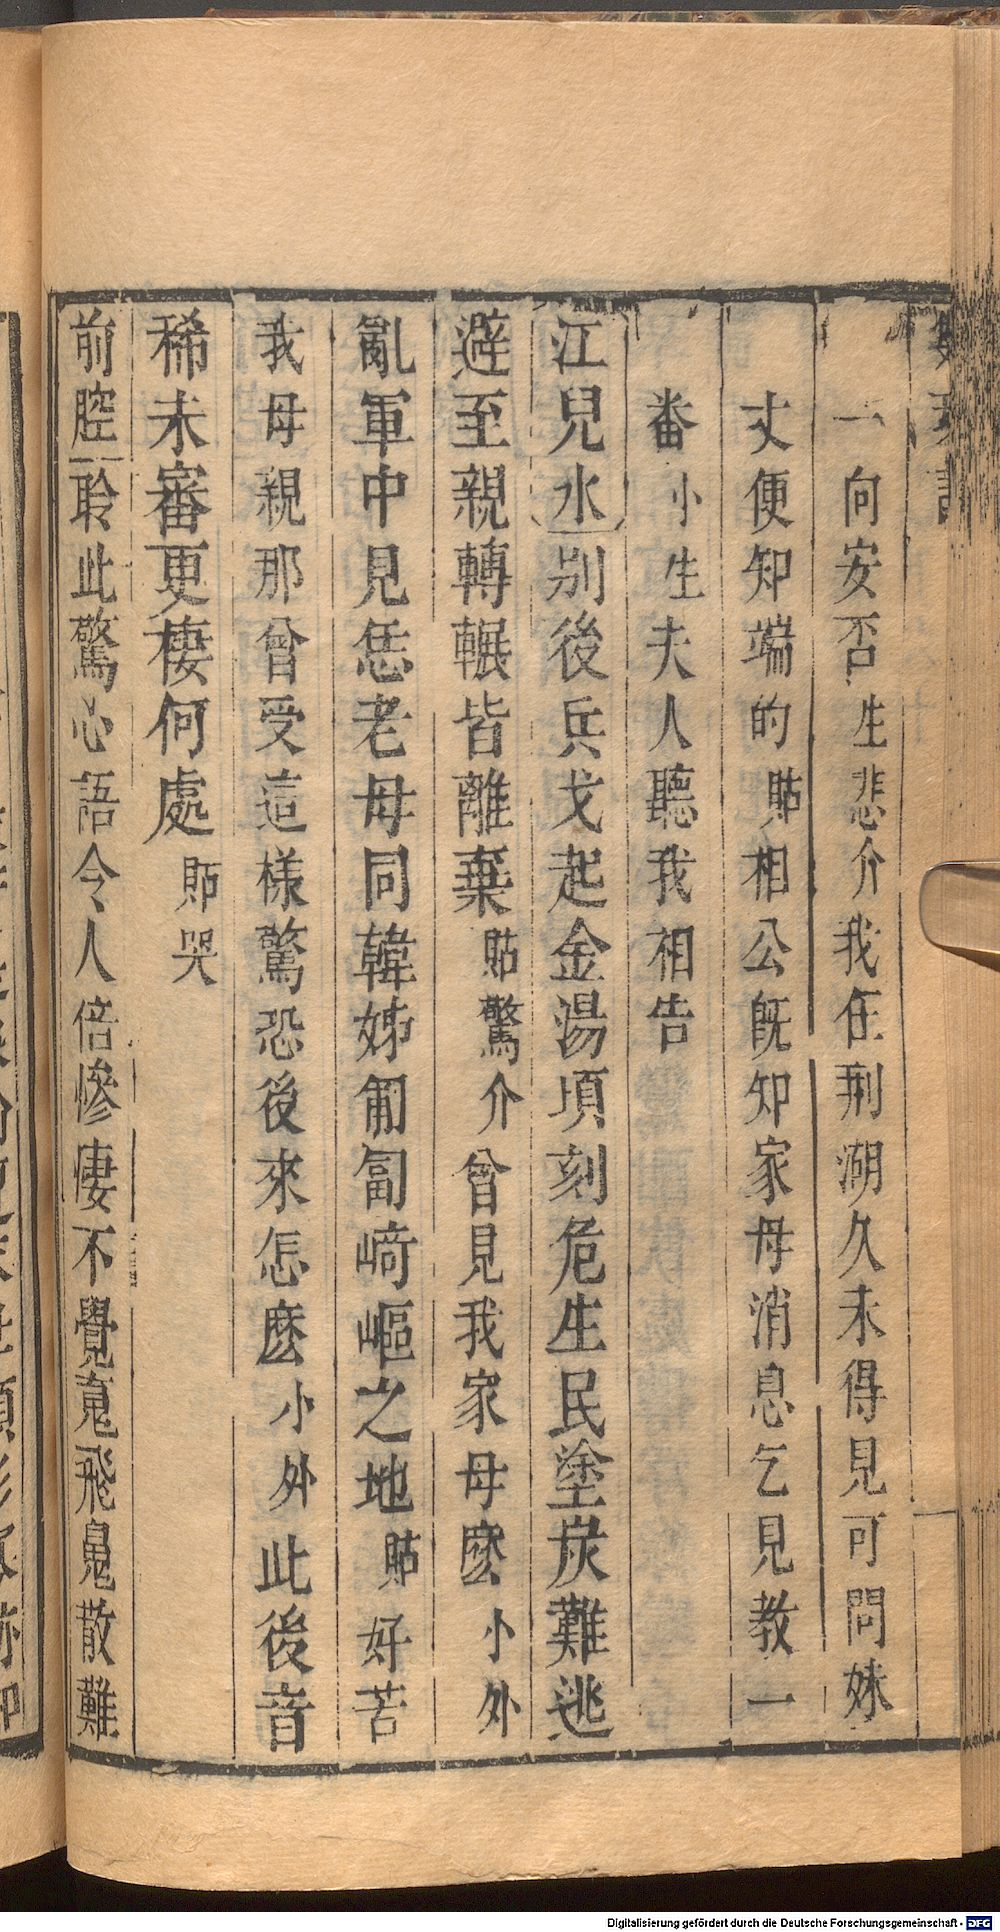 一向安否生悲介我在荆湖久未得見可問妹
丈便知端的貼相公旣知家母消息乞見敎一
番小生夫人聽我相告
江兒水別後兵戈起金湯頃刻危生民塗炭難逃
避至親轉輾皆離棄貼驚介曾見我家母麽小外
亂軍中見恁老母同韓姊匍匐﨑嶇之地貼好苦
我母親那曾受這樣驚恐後來怎麽小外此後音
稀未審更棲何處貼哭
前腔聆此驚心語令人倍慘悽不覺䰟飛䰟散難
Digitalisierung gefördert durch die Deutsche Forschungsgemeinschaft - DFG